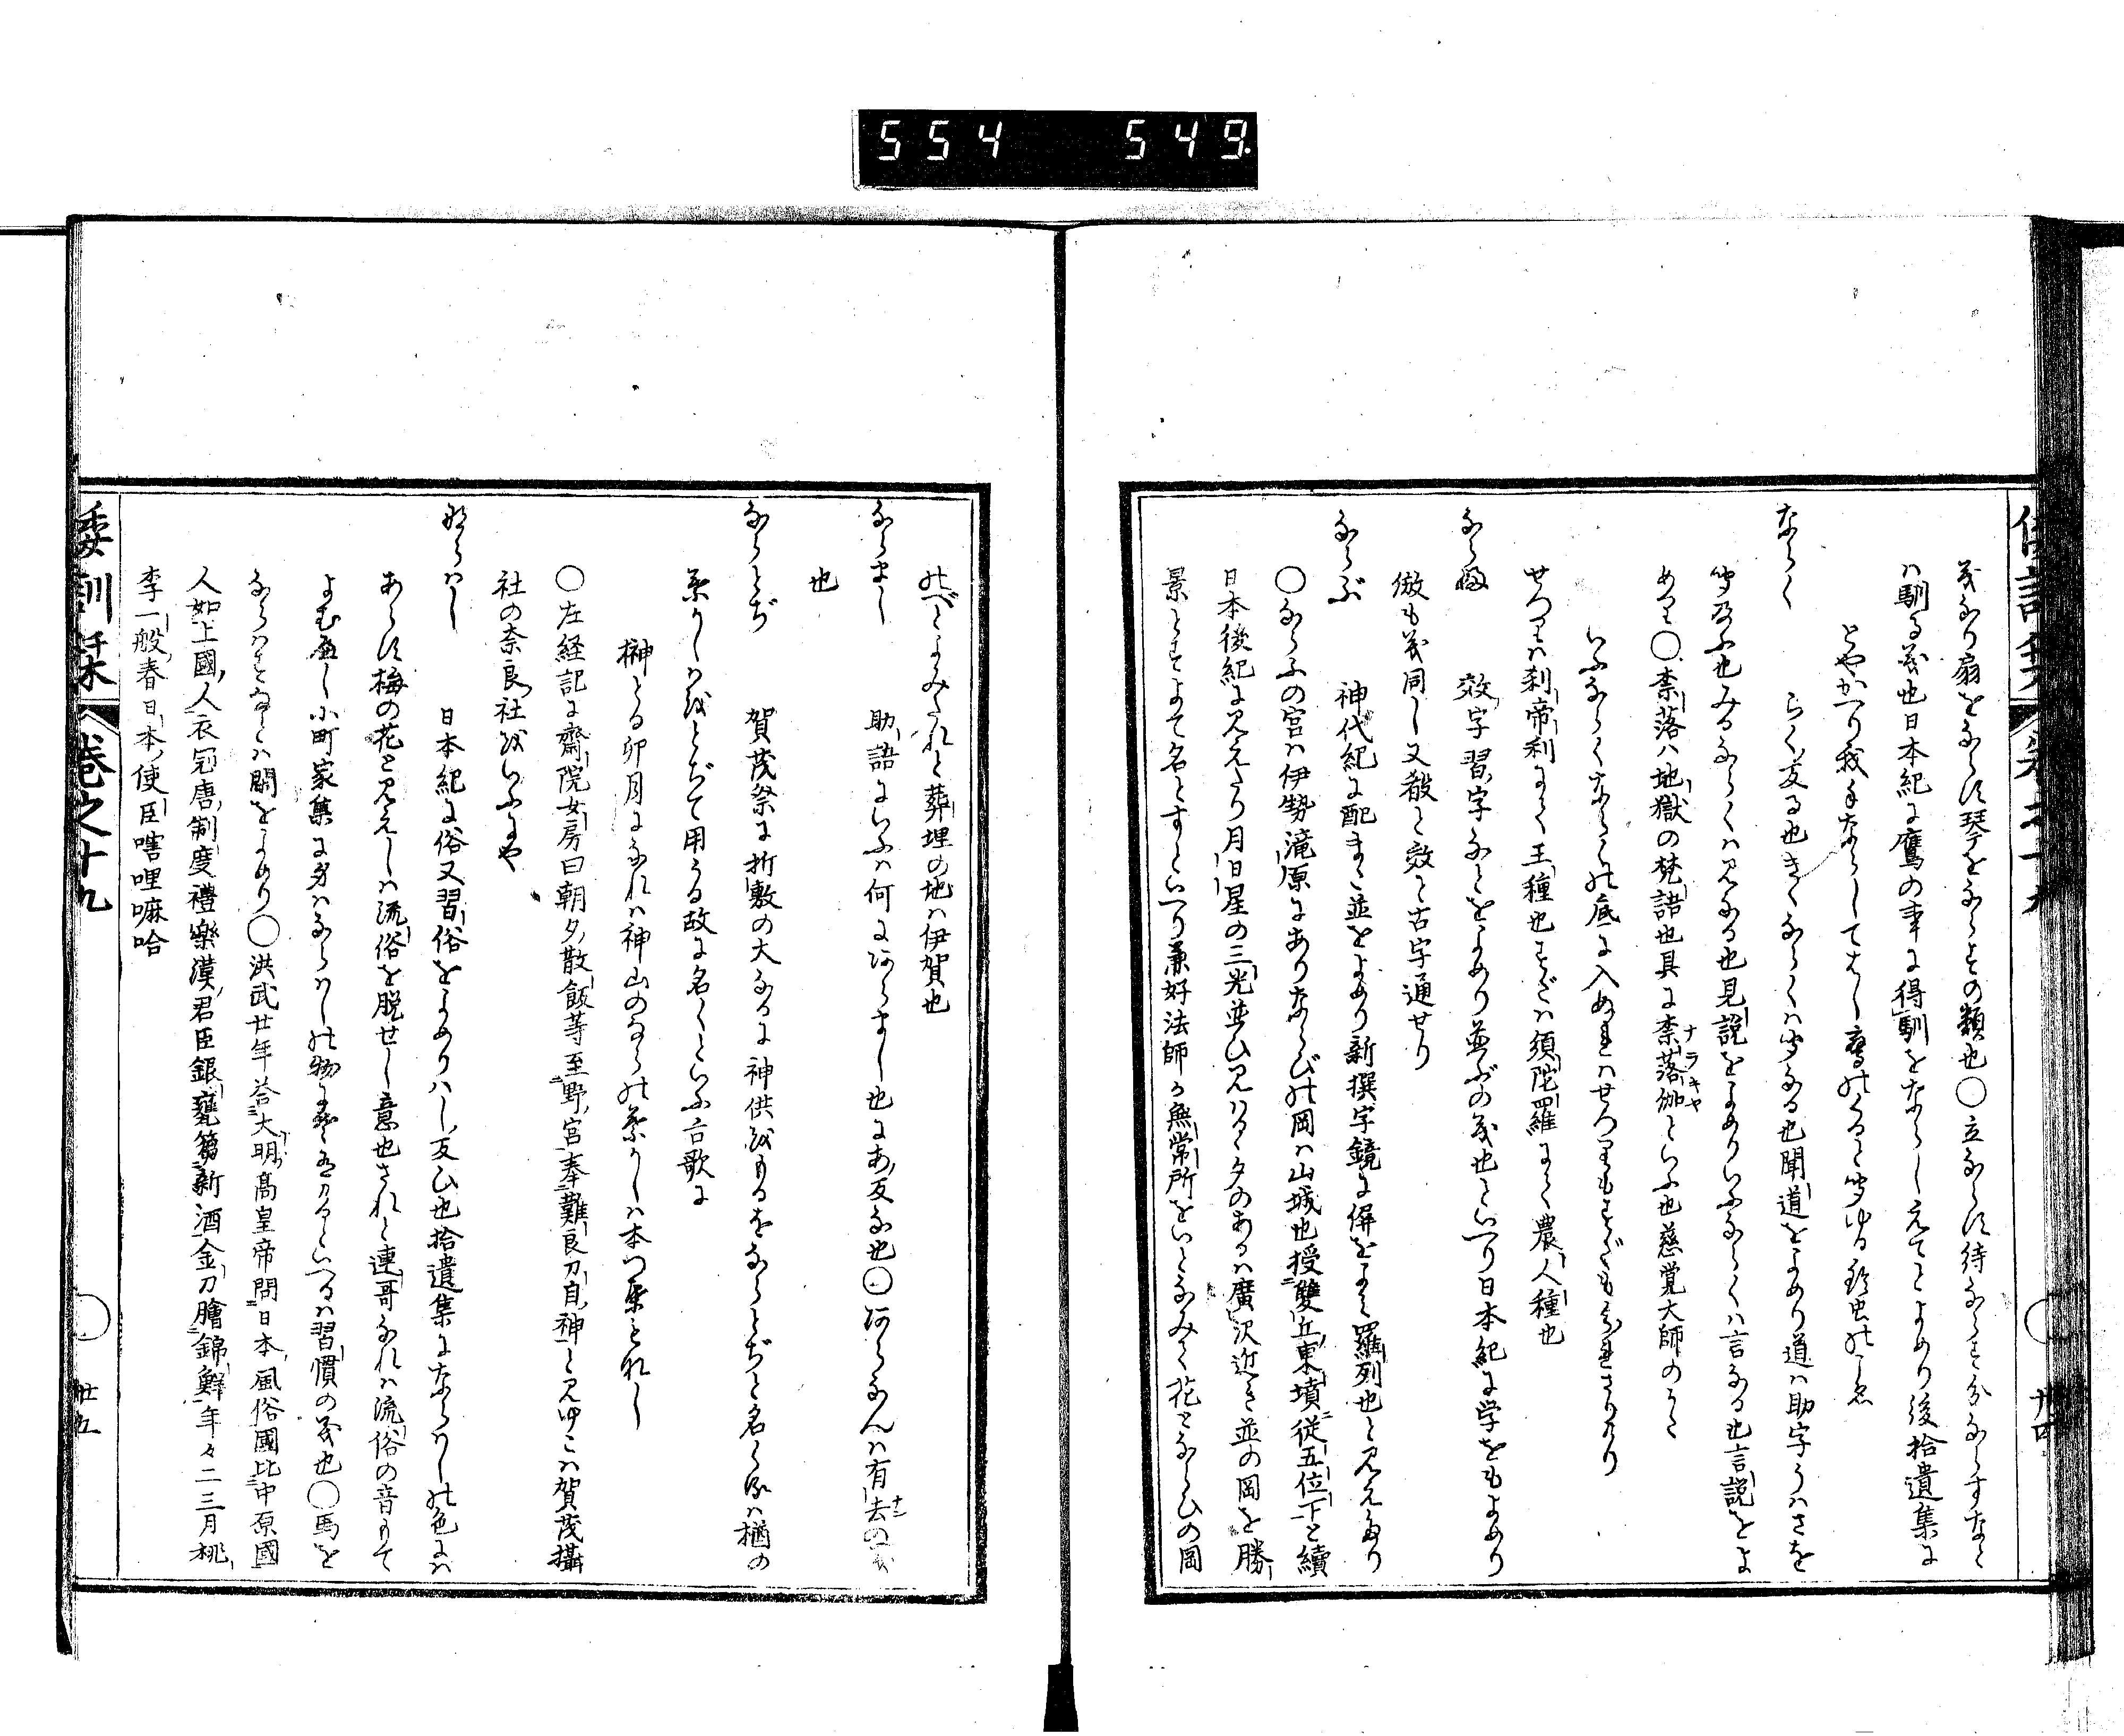 554 549.
義なり扇をならす琴をならすの類也〇立ならす待ならす分ならすなと
ハ馴る義也日本紀に鷹の事に得馴をならしえてとよめり後拾遺集に
とやかへり我手ならしてし鷹のくると聞ゆる鈴虫のこゑ
ならく らく反る也きくならくハ聞なる也聞道をよめり道ハ助字うハさを
聞及ふ也みるならくハ見なる也見説をよめりいふならくハ言なる也言説をよ
めり〇柰落ハ地獄の梵語也具に柰落伽といふ也慈覚大師のうた
ナラキヤ
いふならくならくの底に入ぬれハせつりもすだもかはらさりけり
せつりハ刹帝利にて王種也すだハ須陀羅にて農人種也
ならふ 效字習字なとをよめり並ぶの義也といへり日本紀に学をもよめり
倣も義同し又殽と效と古字通せり
ならぶ 神代紀に配また並をよめり新撰字鏡に偋をよみ羅列也と見えたり
〇ならふの宮ハ伊勢滝原にありならびの岡ハ山城也授雙丘東墳従五位下と續
日本後紀に見えたり月日星の三光並ひ見ハるゝ夕のあるハ廣沢近き並の岡を勝
景とすよて名とすといへり兼好法師か無常所をいとなみて花とならひの岡
のべとよみたれと葬埋の地ハ伊賀也
ならまし 助語にいふハ何にあらまし也にあ反な也〇あらなんハ有去の義
ナン
也
ならとぢ 賀茂祭に折敷の大なるに神供をもるをならとぢと名く是ハ楢の
葉かしハをとぢて用うる故に名くといふ古歌に
榊とる卯月になれハ神山のならの葉かしハ本つ葉もなし
〇左経記に齋院女房曰朝夕散飯等至野宮奉難良刀自神と見ゆこハ賀茂攝
社の奈良社をいふにや
ならハし 日本紀に俗又習俗をよめりハし反ひ也拾遺集にならハしの色にハ
あらす梅の花と見えしハ流俗を脱せし意也されと連哥なれハ流俗の音もて
よむ應し小町家集に身ハならハしの物にそ有けるといへるハ習慣の義也〇馬を
ならハすなとハ閑をよめり〇洪武廿年荅大明高皇帝問日本風俗國比中原國
人如上國人衣冠唐制度禮樂漢君臣銀甕篘新酒金刀膾錦鮮年々二三月桃
李一般春日本使臣嗐哩嘛哈
倭訓栞 卷之十九 廿五